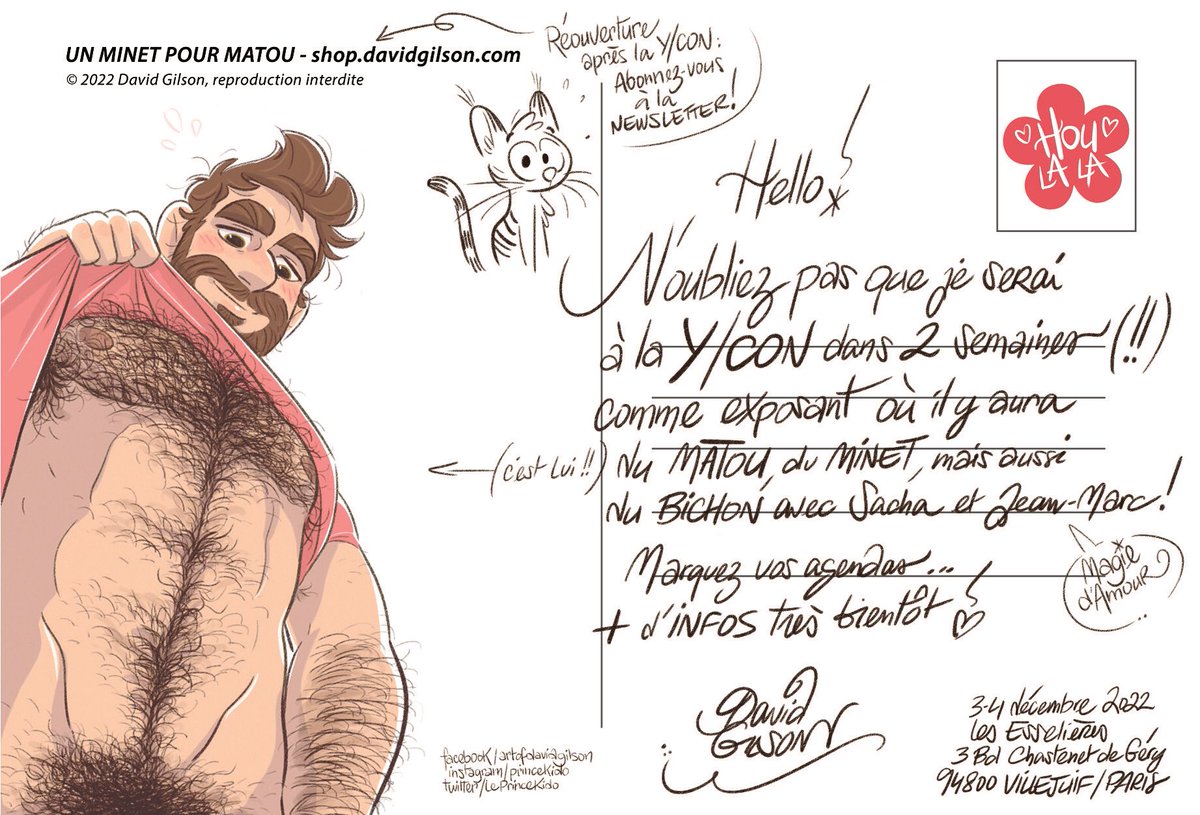 UN MINET POUR MATOU - shop.davidgilson.com
© 2022 David Gilson, reproduction interdite
Réouverture
après la Y/CON :
Abonnez-vous
à la
NEWSLETTER !
H'OU
LA LA
Hello !
N'oubliez pas que je serai
à la Y/CON dans 2 semaines (!!)
comme exposant où il y aura
(c'est lui !!) du MATOU, du MINET, mais aussi
du BICHON avec Sacha et Jean-Marc !
Magie
d'Amour
Marquez vos agendas...
+ d'INFOS très bientôt !
David
Gilson
facebook/artofdavidgilson
instagram/princekido
twitter/LePrinceKido
3-4 décembre 2022
Les Esselières
3 Bd Chastenet de Géry
94800 VILLEJUIF/PARIS